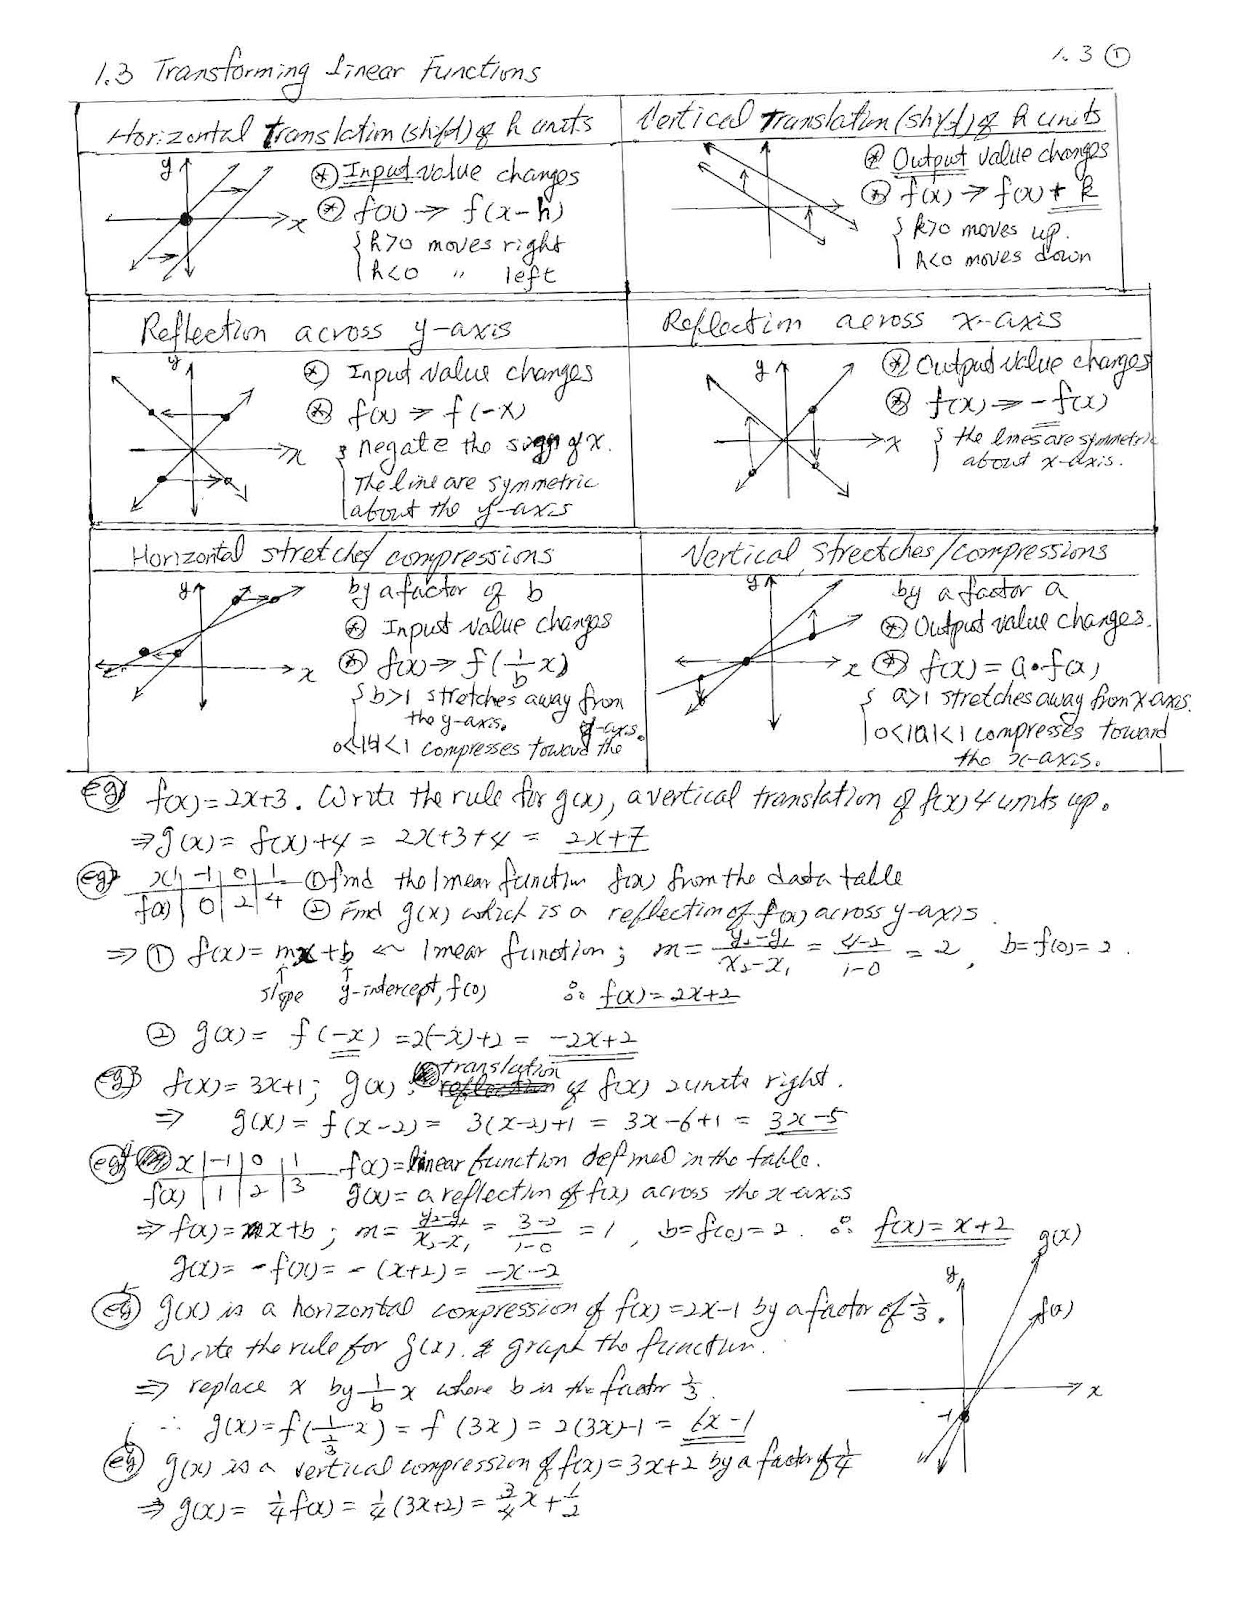 1.3 ①
1.3 Transforming Linear Functions
Horizontal Translation (shift) of h units
y
x
⊛ Input value changes
⊛ f(x) ⇒ f(x-h)
h>0 moves right
h<0 " left
Vertical Translation (shift) of k units
⊛ Output value changes
⊛ f(x) ⇒ f(x) + k
k>0 moves up.
k<0 moves down
Reflection across y-axis
y
x
⊛ Input value changes
⊛ f(x) ⇒ f(-x)
negate the sign of x.
The line are symmetric
about the y-axis
Reflection across x-axis
y
x
⊛ Output value changes
⊛ f(x) ⇒ -f(x)
the lines are symmetric
about x-axis.
Horizontal stretches/compressions
y
x
by a factor of b
⊛ Input value changes
⊛ f(x) ⇒ f(1/b x)
b>1 stretches away from
the y-axis.
0<|b|<1 compresses toward the
y-axis.
Vertical stretches/compressions
y
x
by a factor a
⊛ Output value changes.
⊛ f(x) = a·f(x)
a>1 stretches away from x-axis.
0<|a|<1 compresses toward
the x-axis.
eg1 f(x)=2x+3. Write the rule for g(x), a vertical translation of f(x) 4 units up.
⇒ g(x) = f(x)+4 = 2x+3+4 = 2x+7
eg2 x | -1 | 0 | 1 ① find the linear function f(x) from the data table
f(x) | 0 | 2 | 4 ② Find g(x) which is a reflection of f(x) across y-axis.
⇒ ① f(x) = mx+b ← linear function; m = y₂-y₁/x₂-x₁ = 4-2/1-0 = 2, b=f(0)=2.
slope y-intercept, f(0) ∴ f(x)=2x+2
② g(x) = f(-x) = 2(-x)+2 = -2x+2
translation
eg3 f(x)=3x+1; g(x): of f(x) 2 units right.
⇒ g(x) = f(x-2) = 3(x-2)+1 = 3x-6+1 = 3x-5
eg4 x | -1 | 0 | 1 f(x)=linear function defined in the table.
f(x) | 1 | 2 | 3 g(x)= a reflection of f(x) across the x-axis
⇒ f(x)=mx+b; m = y₂-y₁/x₂-x₁ = 3-2/1-0 = 1, b=f(0)=2. ∴ f(x)=x+2
g(x)= -f(x)= -(x+2) = -x-2
eg5 g(x) is a horizontal compression of f(x)=2x-1 by a factor of 1/3.
Write the rule for g(x). & graph the function.
⇒ replace x by 1/b x where b is the factor 1/3.
∴ g(x)=f(1/(1/3) x) = f(3x) = 2(3x)-1 = 6x-1
y
g(x)
f(x)
x
-1
eg6 g(x) is a vertical compression of f(x)=3x+2 by a factor of 1/4
⇒ g(x) = 1/4 f(x) = 1/4 (3x+2) = 3/4 x + 1/2